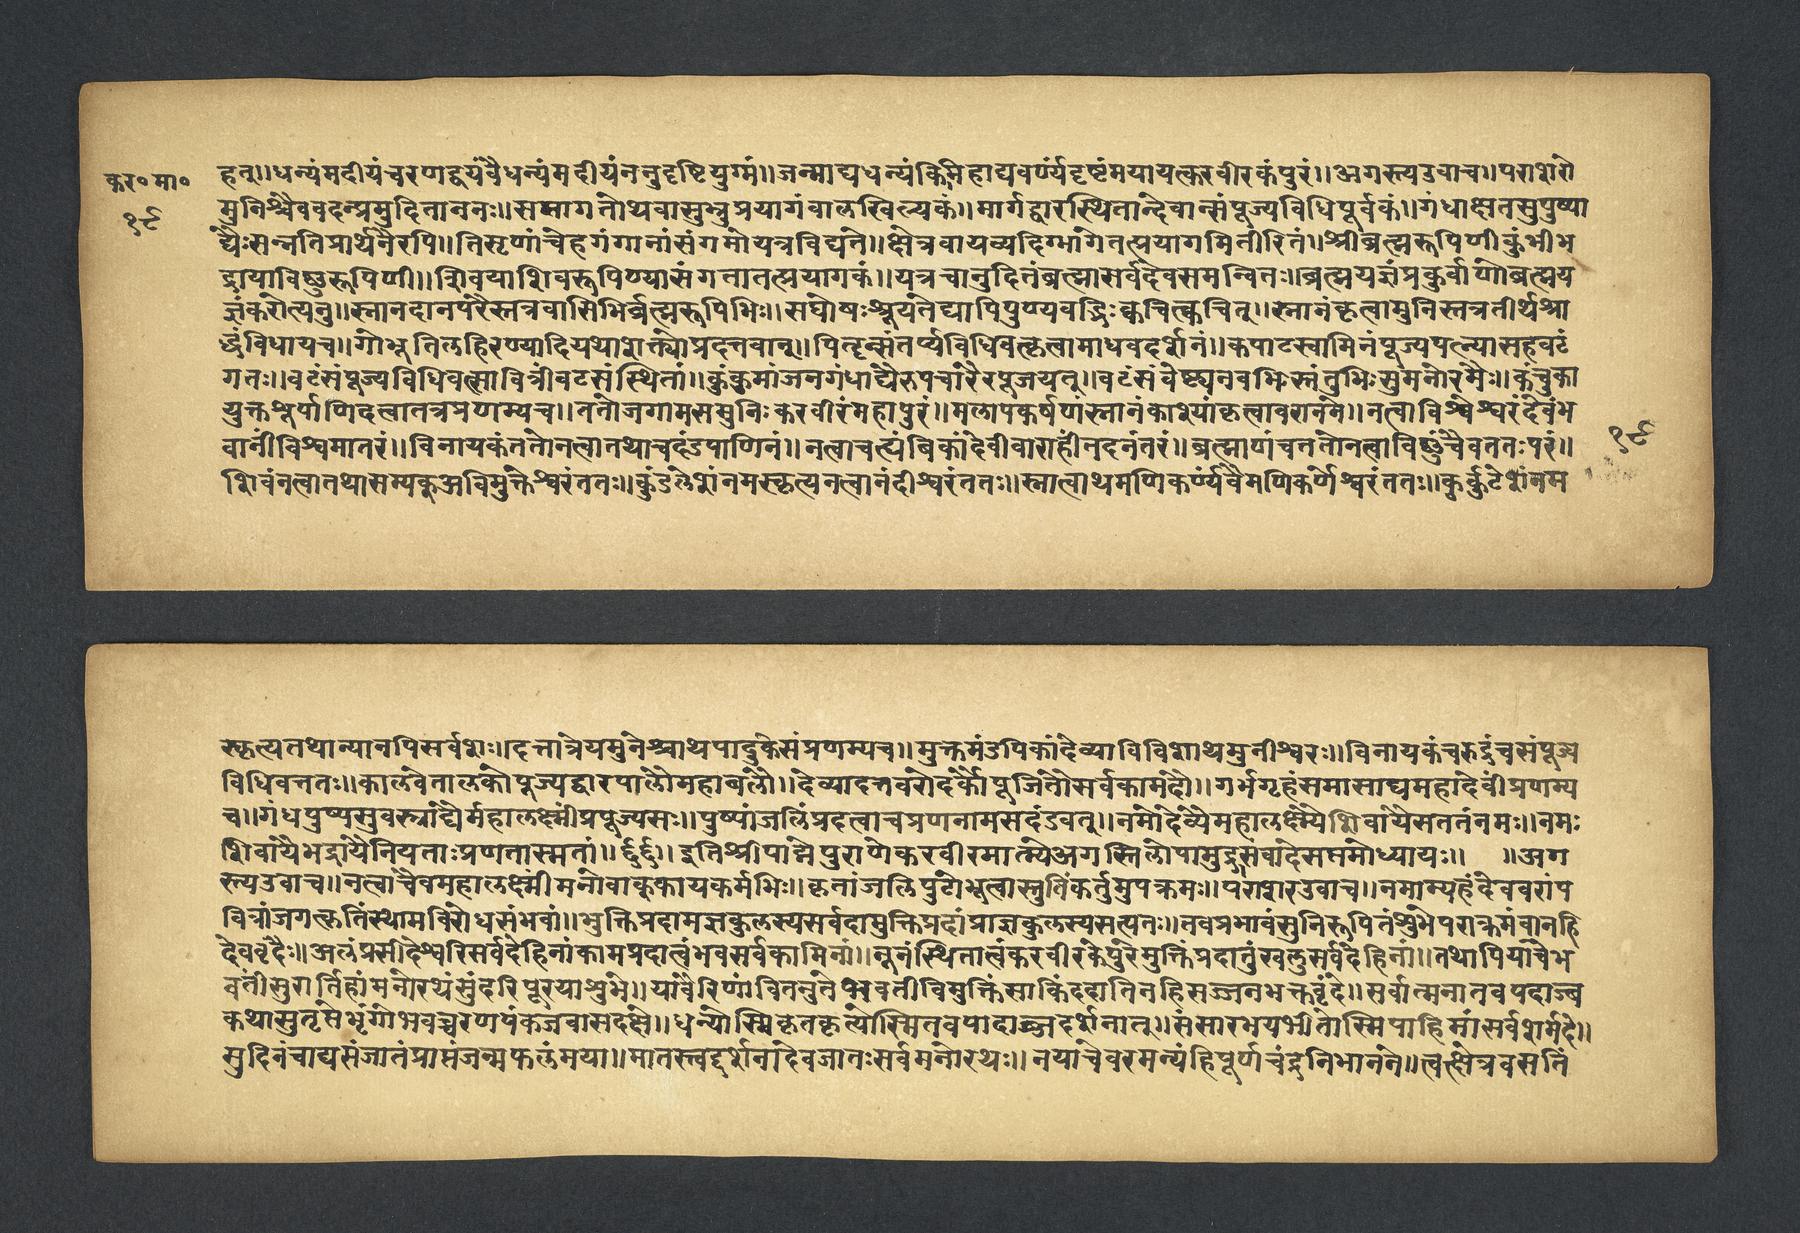 कर॰मा॰
१९
हत्॥धन्यंमदीयंचरणद्वयंवैधन्यंमदीयंननुदृष्टियुग्मं॥जन्माद्यधन्यंकिमिहाद्यवर्ण्यंदृष्टंमयायत्करवीरकंपुरं॥अगस्त्यउवाच॥पराशरो
मुनिश्चैववदन्प्रमुदिताननः॥समागतोथवासुभ्रुप्रयागंवालखिल्यकं॥मार्गद्वारस्थितान्देवान्संपूज्यविधिपूर्वकं॥गंधाक्षतसुपुष्पा
द्यैःसन्नतिप्रार्थनैरपि॥तिसृणांचेहगंगानांसंगमोयत्रविद्यते॥क्षेत्रवायव्यदिग्भागेतत्प्रयागमितीरितं॥श्रीब्रह्मरूपिणीकुंभीभ
द्रायाविष्णुरूपिणी॥शिवयाशिवरूपिण्यासंगतातत्प्रयागकं॥यत्रचानुदितंब्रह्मासर्वदेवसमन्वितः॥ब्रह्मयज्ञंप्रकुर्वाणोब्रह्मय
ज्ञंकरोत्यनु॥स्नानदानपरैस्तत्रवासिभिर्ब्रह्मरूपिभिः॥सघोषःश्रूयतेद्यापिपुण्यवद्भिःक्वचित्क्वचित्॥स्नानंकृत्वामुनिस्तत्रतीर्थश्रा
द्धंविधायच॥गोभूतिलहिरण्यादियथाशक्त्याप्रदत्तवान्॥पितॄन्संतर्प्यविधिवत्कृत्वामाधवदर्शनं॥कपाटस्वामिनंपूज्यपत्न्यासहवटं
गतः॥वटंसंपूज्यविधिवत्सावित्रींवटसंस्थितां॥कुंकुमांजनगंधाद्यैरुपचारैरपूजयत्॥वटंसंवेष्ट्यनवभिःस्तंतुभिःसुमनोरमैः॥कंचुका
युक्तशूर्पाणिदत्वातत्रप्रणम्यच॥ततोजगामससमुनिःकरवीरंमहापुरं॥मलापकर्षणंस्नानंकाश्यांकृत्वावरानने॥नत्वाविश्वेश्वरंदेवंभ
वानींविश्वमातरं॥विनायकंततोनत्वातथाचदंडपाणिनं॥नत्वाचत्र्यंबिकांदेवींवाराहींतदनंतरं॥ब्रह्माणंचततोनत्वाविष्णुंचैवततःपरं॥
१९
शिवंनत्वातथासम्यक्अविमुक्तेश्वरंततः॥कुंडलेशंनमस्कृत्यनत्वानंदीश्वरंततः॥स्नात्वाथमणिकर्ण्यांवैमणिकर्णेश्वरंततः॥कुर्क्कुटेशंनम
स्कृत्यतथान्यानपिसर्वशः॥दत्तात्रेयमुनेश्चाथपादुकेसंप्रणम्यच॥मुक्तमंडपिकांदेव्याविविशाथमुनीश्वरः॥विनायकंचरुद्रंचसंपूज्य
विधिवत्ततः॥कालवेतालकौपूज्यद्वारपालौमहाबलौ॥देव्यादत्तवरौदर्कौपूजितौसर्वकामदौ॥गर्भगृहंसमासाद्यमहादेवींप्रणम्य
च॥गंधपुष्पसुवस्त्राद्यैर्महालक्ष्मींप्रपूज्यसः॥पुष्पांजलिंप्रदत्वाचप्रणनामसदंडवत्॥नमोदेव्यैमहालक्ष्म्यैशिवायैसततंनमः॥नमः
शिवायैभद्रायैनियताःप्रणतास्मतां॥इतिश्रीपाद्मेपुराणेकरवीरमात्म्येअगस्तिलोपामुद्रासंवादेसप्तमोध्यायः॥ ॥अग
स्त्यउवाच॥नत्वाचैवमहालक्ष्मींमनोवाक्कायकर्मभिः॥कृतांजलिपुटोभूत्वास्तुतिंकर्तुमुपक्रमः॥पराशरउवाच॥नमाम्यहंदेववरांप
वित्रांजगत्कृतिंस्थामविरोधसंभवां॥भुक्तिप्रदामज्ञकुलस्यसर्वदामुक्तिप्रदांप्राज्ञकुलस्यसत्पतः॥तवप्रभावंसुनिरूपितंशुभेपराक्रमंवानहि
देववृंदैः॥अलंप्रसीदेश्वरिसर्वदेहिनांकामप्रदात्वंभवसर्वकामिनां॥नूनंस्थितात्वंकरवीरकेपुरेमुक्तिंप्रदातुंखलुसर्वदेहिनां॥तथापियाचेभ
वतींसुरार्तिहांमनोरथंसुंदरिपूरयाशुभे॥यावैरिणांवितनुतेभवतीविमुक्तिंसाकिंददातिनहिसज्जनभक्तवृंदे॥सर्वात्मनातवपदाज्व
कथासुतृप्तभृंगोभवच्चरणपंकजवासदक्षे॥धन्योस्मिकृतकृत्योस्मितवपादाब्जदर्शनात्॥संसारभयभीतोस्मिपाहिमांसर्वशर्मदे॥
सुदिनंचाद्यसंजातंप्राप्तंजन्मफलंमया॥मातस्त्वद्दर्शनादेवजातःसर्वमनोरथः॥नयाचेवरमन्यंहिपूर्णचंद्रनिभानने॥त्वत्क्षेत्रवसतिं